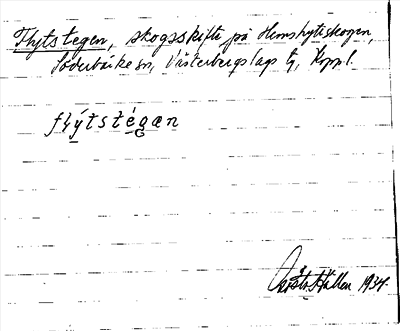 Flytstegen, skogsskifte på Hemshytteskogen,
Söderbärke sn, Västerbergslags tg, Koppl.
flýtstégæn
Gösta Hallen 1934.